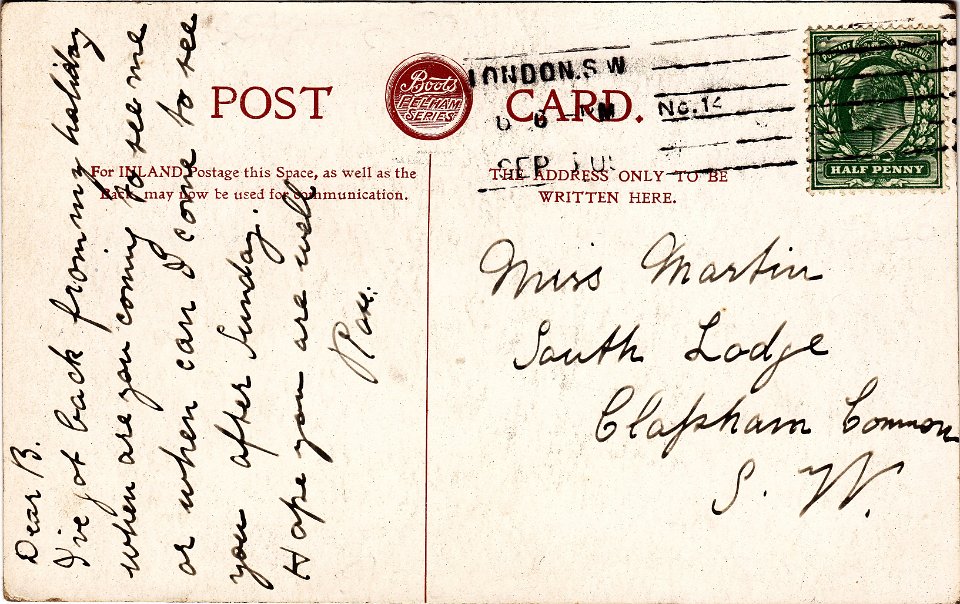 POST CARD.
Boots
PELHAM
SERIES
LONDON. S.W
No. 14
SEP
HALF PENNY
For INLAND Postage this Space, as well as the
Back, may now be used for communication.
THE ADDRESS ONLY TO BE
WRITTEN HERE.
Dear B.
I've got back from my holiday
when are you coming to see me
or when can I come to see
you after Sunday.
Hope you are well
Miss Martin
South Lodge
Clapham Common
S. W.